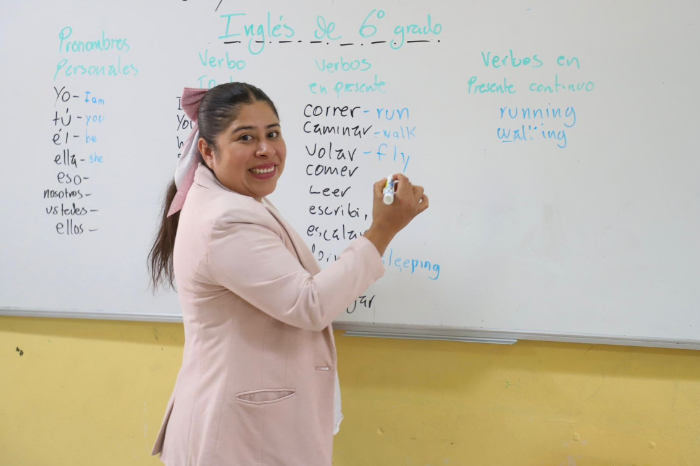 Inglés de 6° grado
Pronombres
Personales
Yo- I am
tú- you
él- he
ella- she
eso-
nosotros-
ustedes-
ellos-
Verbo
Verbos
en presente
correr- run
Caminar- walk
Volar- fly
comer
Leer
escribi,
escalar
leeping
Verbos en
Presente continuo
running
walking